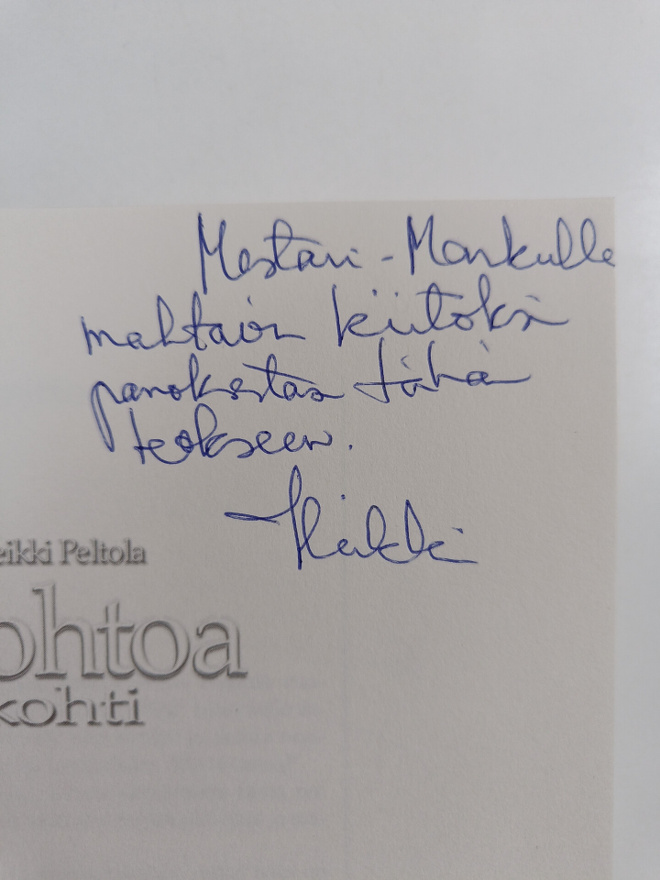 Mestari-Markulle
mahtavan kiitoksin
panoksestas tähän
teokseen.
Heikki
eikki Peltola
ohtoa
kohti